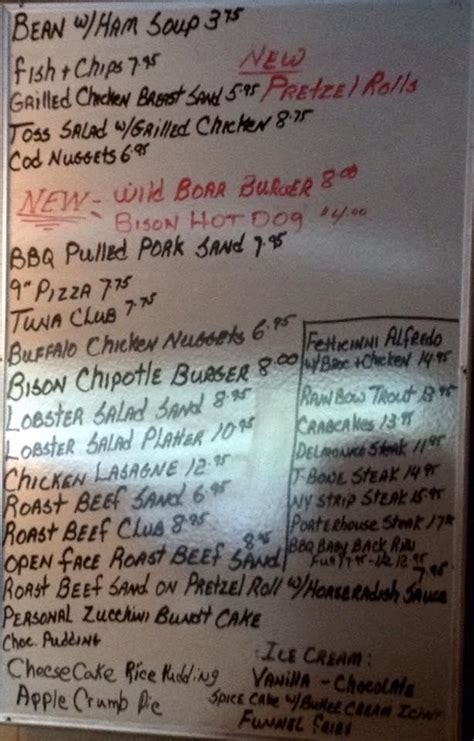 BEAN W/HAM SOUP 3.75
FISH + CHIPS 7.95
NEW
GRILLED CHICKEN BREAST SAND 5.95 PRETZEL ROLLS
TOSS SALAD W/GRILLED CHICKEN 8.75
COD NUGGETS 6.95
NEW - WILD BOAR BURGER 8.00
BISON HOT DOG $4.00
BBQ PULLED PORK SAND 7.95
9" PIZZA 7.75
TUNA CLUB 7.75
BUFFALO CHICKEN NUGGETS 6.95
BISON CHIPOTLE BURGER 8.00
LOBSTER SALAD SAND 8.95
LOBSTER SALAD PLATTER 10.95
CHICKEN LASAGNE 12.95
ROAST BEEF SAND 6.95
ROAST BEEF CLUB 8.95
OPEN FACE ROAST BEEF SAND 8.95
ROAST BEEF SAND ON PRETZEL ROLL W/HORSERADISH SAUCE 7.95
PERSONAL ZUCCHINI BUNDT CAKE
CHOC. PUDDING
CHEESECAKE RICE PUDDING
APPLE CRUMB PIE
FETTICINNI ALFREDO
W/BROC + CHICKEN 14.95
RAINBOW TROUT 13.95
CRABCAKES 13.95
DELMONICO STEAK 11.95
T-BONE STEAK 14.95
NY STRIP STEAK 15.95
PORTERHOUSE STEAK
BBQ BABY BACK RIBS
ICE CREAM:
VANILLA - CHOCOLATE
SPICE CAKE W/BUTTER CREAM ICING
FUNNEL FRIES